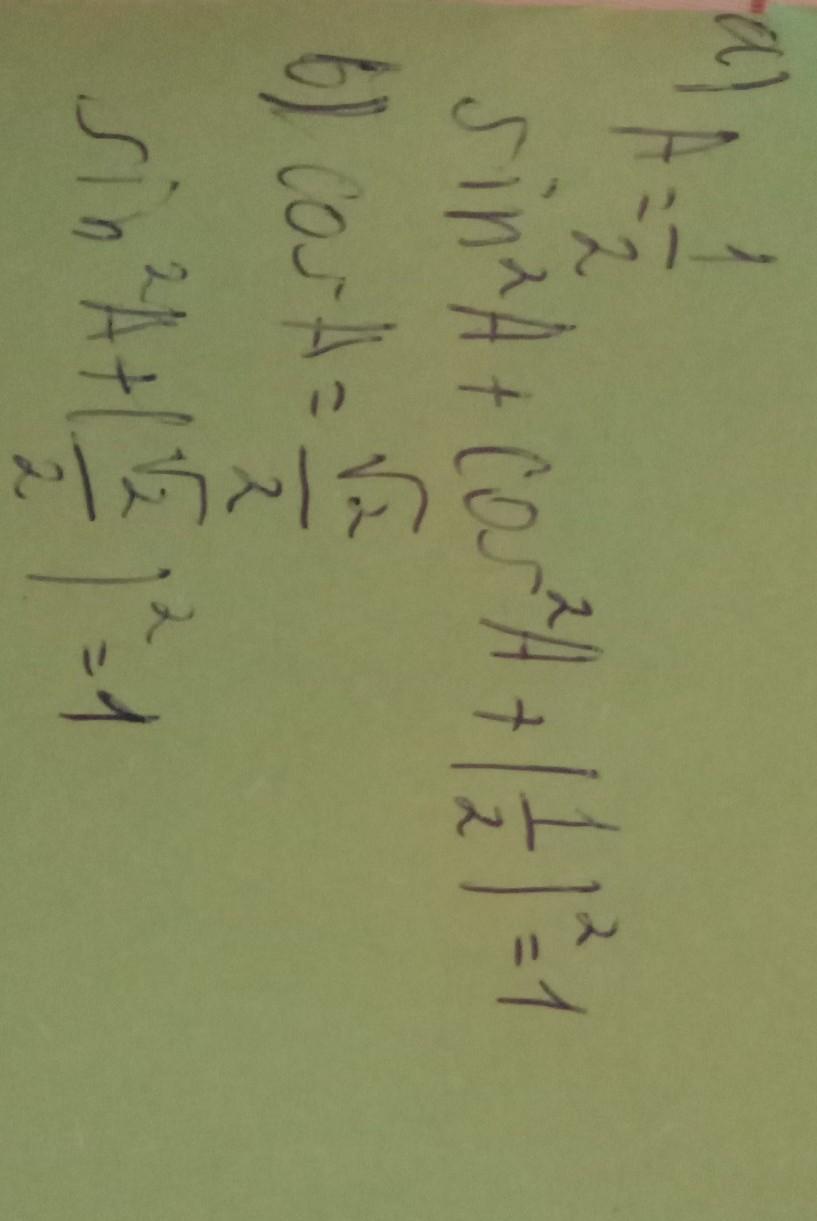 a) A = 1/2
sin²A + cos²A + (1/2)² = 1
b) cos A = √2/2
sin²A + (√2/2)² = 1